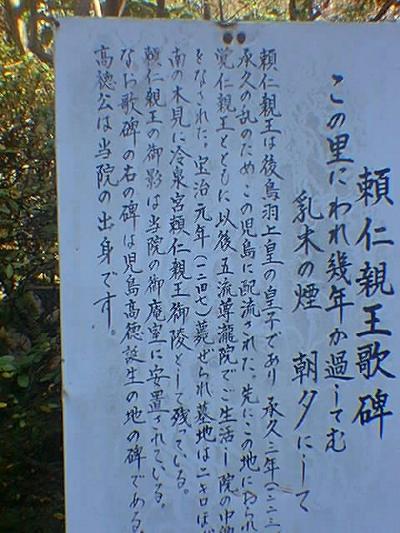 頼仁親王歌碑
この里にわれ幾年か過してむ
乳木の煙 朝夕にして
頼仁親王は後鳥羽上皇の皇子であり 承久三年(一二二
承久の乱のためこの児島に配流された。先にこの地におられ
覚仁親王とともに以後五流尊瀧院でご生活し院の中
をなされた。宝治元年(一二四七)薨ぜられ墓地は二キロ
南の木見に冷泉宮頼仁親王御陵として残っている。
頼仁親王の御影は当院の御庵室に安置されている。
なお歌碑の右の碑は児島高徳誕生の地の碑である。
高徳公は当院の出身です。